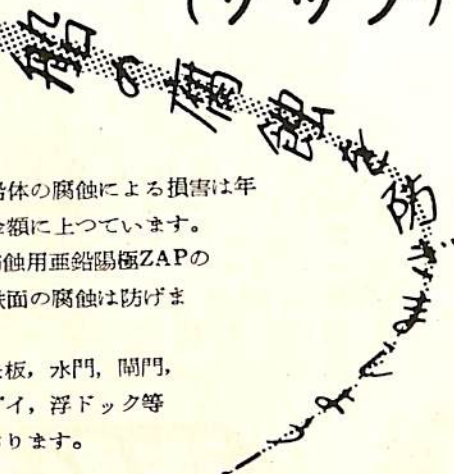 船の腐蝕を防ぎましよう
体の腐蝕による損害は年
額に上つています。
蝕用亜鉛陽極ZAPの
面の腐蝕は防げま
板，水門，閘門，
イ，浮ドック等
ります。